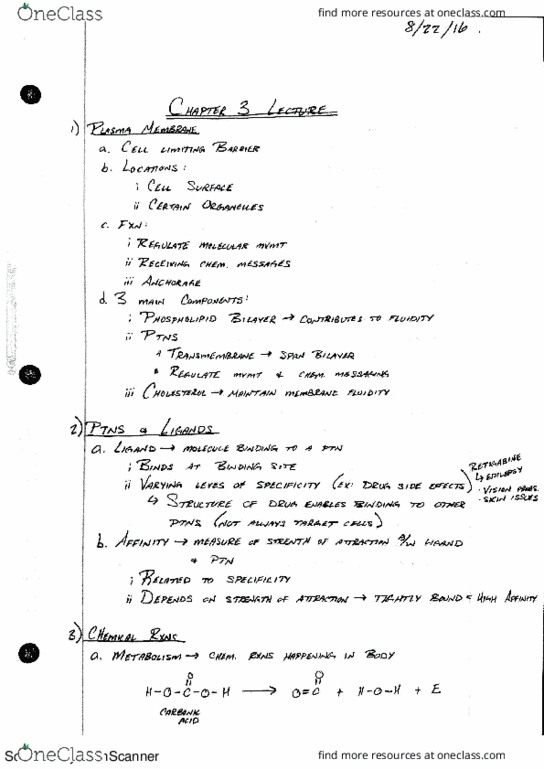 OneClass
find more resources at oneclass.com
8/22/16.
CHAPTER 3 LECTURE
1) PLASMA MEMBRANE
a. CELL LIMITING BARRIER
b. LOCATIONS:
i CELL SURFACE
ii CERTAIN ORGANELLES
c. FXN:
i REGULATE MOLECULAR MVMT
ii RECEIVING CHEM. MESSAGES
iii ANCHORAGE
d. 3 MAIN COMPONENTS:
i PHOSPHOLIPID BILAYER → CONTRIBUTES TO FLUIDITY
ii PTNS
TRANSMEMBRANE → SPAN BILAYER
REGULATE MVMT & CHEM. MESSAGING
iii CHOLESTEROL → MAINTAIN MEMBRANE FLUIDITY
2) PTNS & LIGANDS
a. LIGAND → MOLECULE BINDING TO A PTN
i BINDS AT BINDING SITE
ii VARYING LEVELS OF SPECIFICITY (EX: DRUG SIDE EFFECTS)
RETIGABINE
↳ EPILEPSY
· VISION PROBS.
· SKIN ISSUES
↳ STRUCTURE OF DRUG ENABLES BINDING TO OTHER
PTNS (NOT ALWAYS TARGET CELLS)
b. AFFINITY → MEASURE OF STRENTH OF ATTRACTION B/W LIGAND
& PTN
i RELATED TO SPECIFICITY
ii DEPENDS ON STRENGTH OF ATTRACTION → TIGHTLY BOUND = HIGH AFFINITY
3) CHEMICAL RXNS
a. METABOLISM → CHEM. RXNS HAPPENING IN BODY
O O
H-O-C-O-H → O=C + H-O-H + E
CARBONIC
ACID
OneClass
Scanner
find more resources at oneclass.com